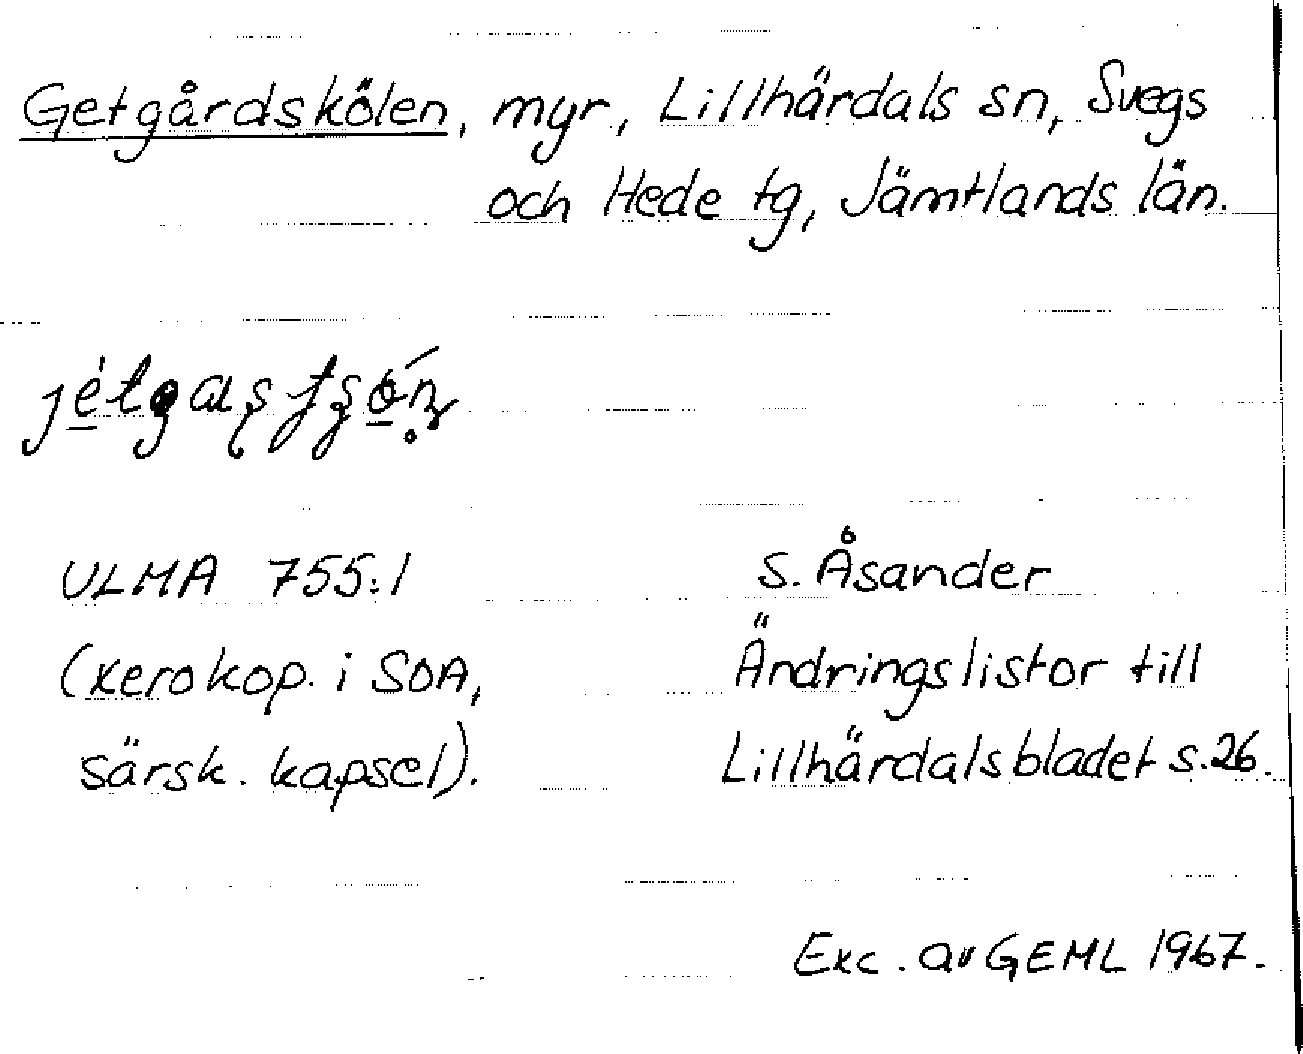 Getgårdskölen, myr, Lillhärdals sn, Svegs
och Hede tg, Jämtlands län.
ULMA 755:1
S. Åsander
(xerokop. i SOA,
Ändringslistor till
särsk. kapsel).
Lillhärdalsbladet s.26.
Exc. av GEML 1967.